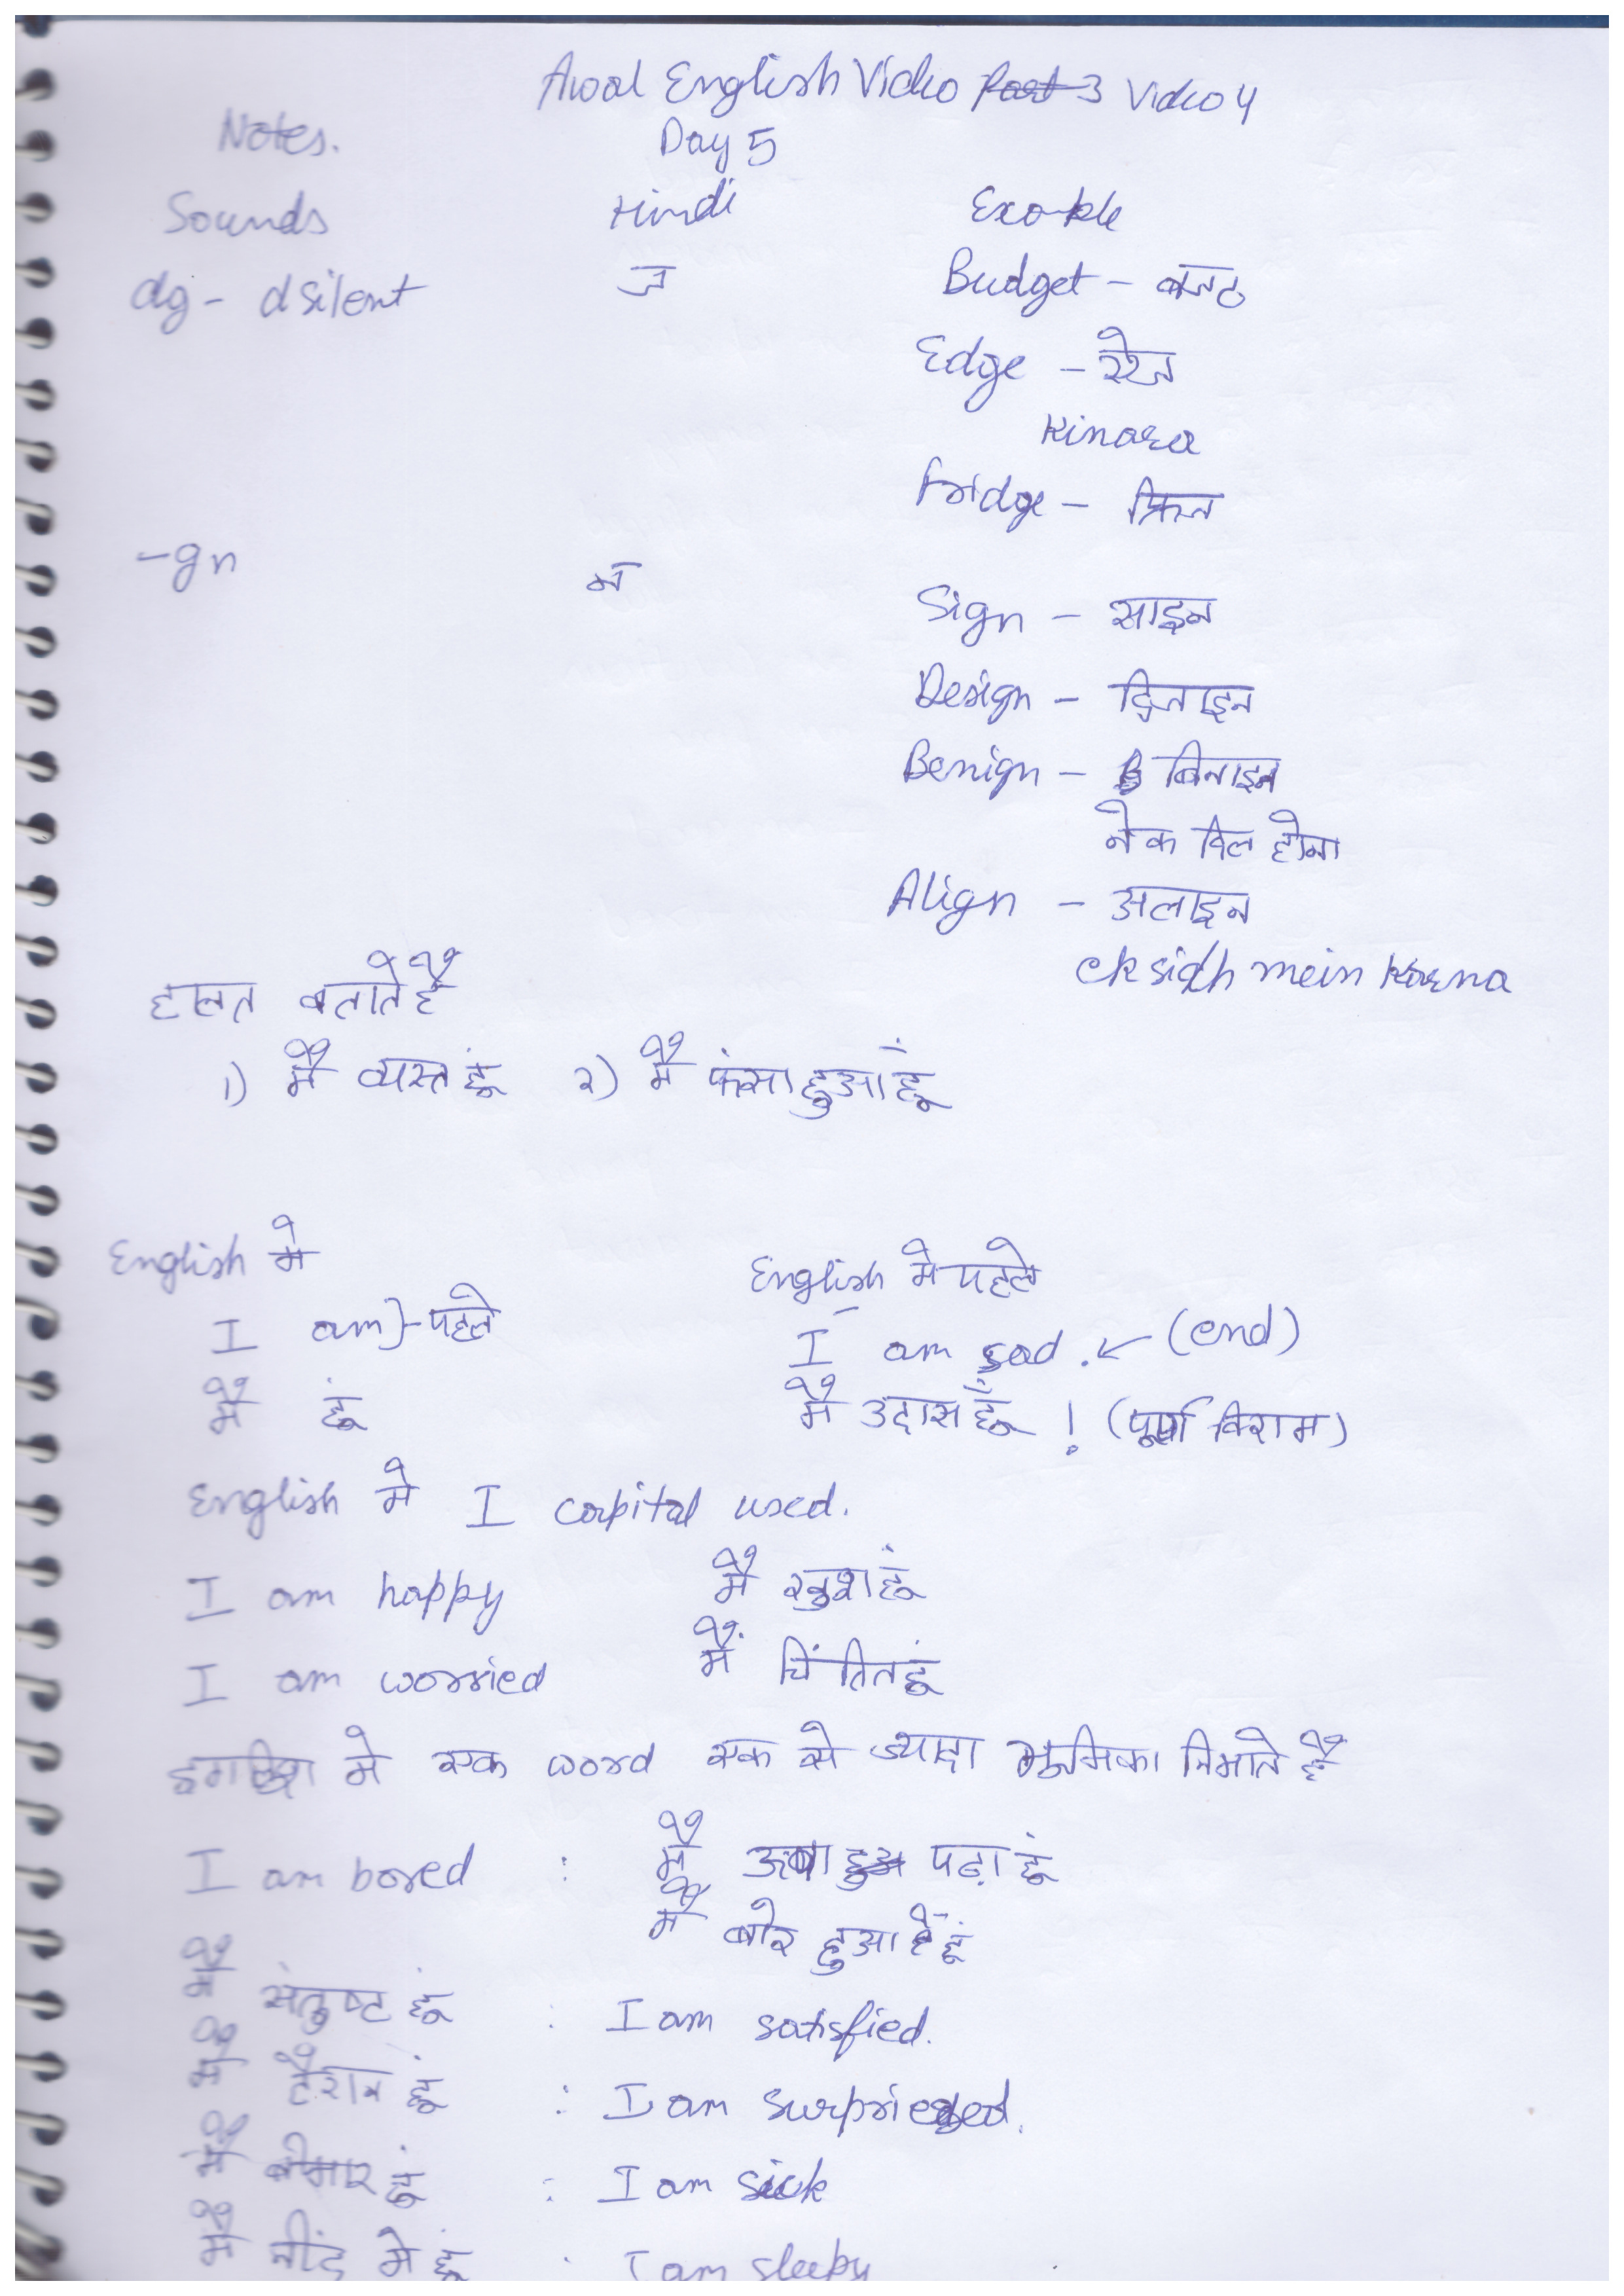 Awal English Video Part 3 Video 4
Notes. Day 5
Sounds Hindi Example
dg - d silent ज Budget - बजट
Edge - ऐज
Kinara
fridge - फ्रिज
-gn न Sign - साइन
Design - डिजाइन
Benign - B बिनाइन
नेक दिल होना
Align - अलाइन
ek sidh mein karna
हालत बताते है
1) मै व्यस्त हूं 2) मै फंसा हुआ हूं
English मे English मे पहले
I am}-पहले I am sad. ← (end)
मै हूं मै उदास हूँ ! (पूर्ण विराम)
English मे I capital used.
I am happy मै खुश हूं
I am worried मैं चिंतित हूं
इंगलिश मे एक word एक से ज्यादा भूमिका निभाते है
I am bored : मै ऊबा हुआ पढ़ा हूं
मै बोर हुआ है हूं
मै संतुष्ट हूं : I am satisfied.
मै हैरान हूं : I am surprieged.
मै बीमार हूं : I am sick
मै नींद मे हूं : I am sleepy